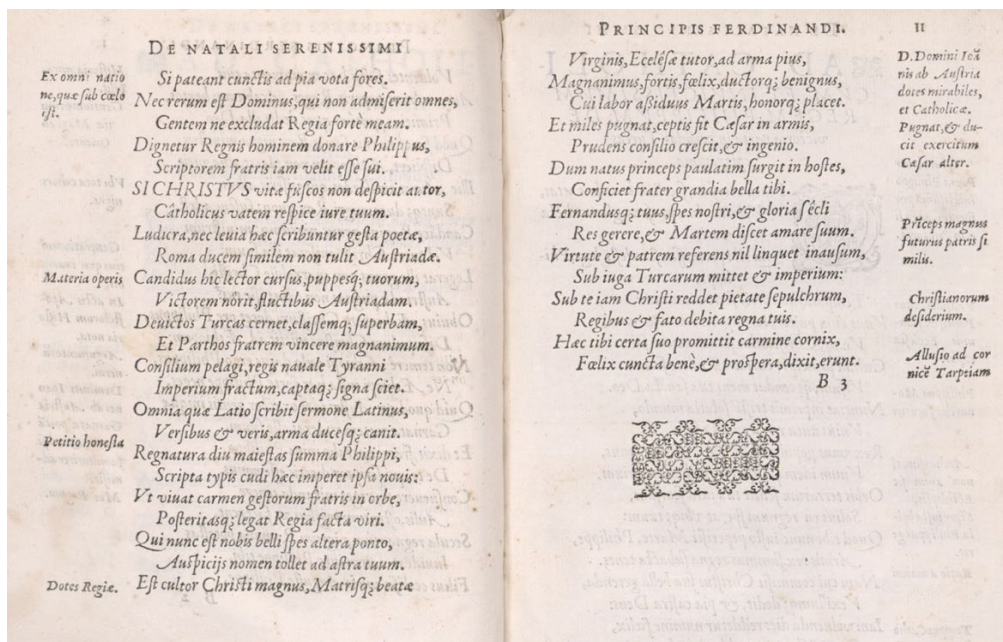 DE NATALI SERENISSIMI
Ex omni natio
ne, quæ sub cœlo
est.
Si pateant cunctis ad pia vota fores.
Nec rerum est Dominus, qui non admiserit omnes,
Gentem ne excludat Regia fortè meam.
Dignetur Regnis hominem donare Philippus,
Scriptorem fratris iam velit esse sui.
SI CHRISTVS vitæ fuscos non despicit auctor,
Càtholicus vatem respice iure tuum.
Ludicra, nec leuia hæc scribuntur gesta poetæ,
Roma ducem similem non tulit Austriadæ.
Materia operis
Candidus hic lector cursus, puppesq; tuorum,
Victorem norit, fluctibus Austriadam.
Deuictos Turcas cernet, classemq; superbam,
Et Parthos fratrem vincere magnanimum.
Consilium pelagi, regis nauale Tyranni
Imperium fractum, captaq; signa sciet.
Omnia quæ Latio scribit sermone Latinus,
Versibus & veris, arma ducesq; canit.
Petitio honesta
Regnatura diu maiestas summa Philippi,
Scripta typis cudi hæc imperet ipsa nouis:
Vt viuat carmen gestorum fratris in orbe,
Posteritasq; legat Regia facta viri.
Qui nunc est nobis belli spes altera ponto,
Auspicijs nomen tollet ad astra tuum.
Dotes Regiæ.
Est cultor Christi magnus, Matrisq; beatæ
PRINCIPIS FERDINANDI.
II
Virginis, Ecclésæ tutor, ad arma pius,
Magnanimus, fortis, fœlix, ductorq; benignus,
Cui labor aßiduus Martis, honorq; placet.
Et miles pugnat, ceptis fit Cæsar in armis,
Prudens consilio crescit, & ingenio.
Dum natus princeps paulatim surgit in hostes,
Conficiet frater grandia bella tibi.
Fernandusq; tuus, spes nostri, & gloria sécli
Res gerere, & Martem discet amare suum.
Virtute & patrem referens nil linquet inausum,
Sub iuga Turcarum mittet & imperium:
Sub te iam Christi reddet pietate sepulchrum,
Regibus & fato debita regna tuis.
Hæc tibi certa suo promittit carmine cornix,
Fœlix cuncta benè, & prospera, dixit, erunt.
B 3
D. Domini Ioã
nis ab Austria
dotes mirabiles,
et Catholicæ.
Pugnat, & du-
cit exercitum
Cæsar alter.
Prĩceps magnus
futurus patris si
milis.
Christianorum
desiderium.
Allusio ad cor
nicē Tarpeiam